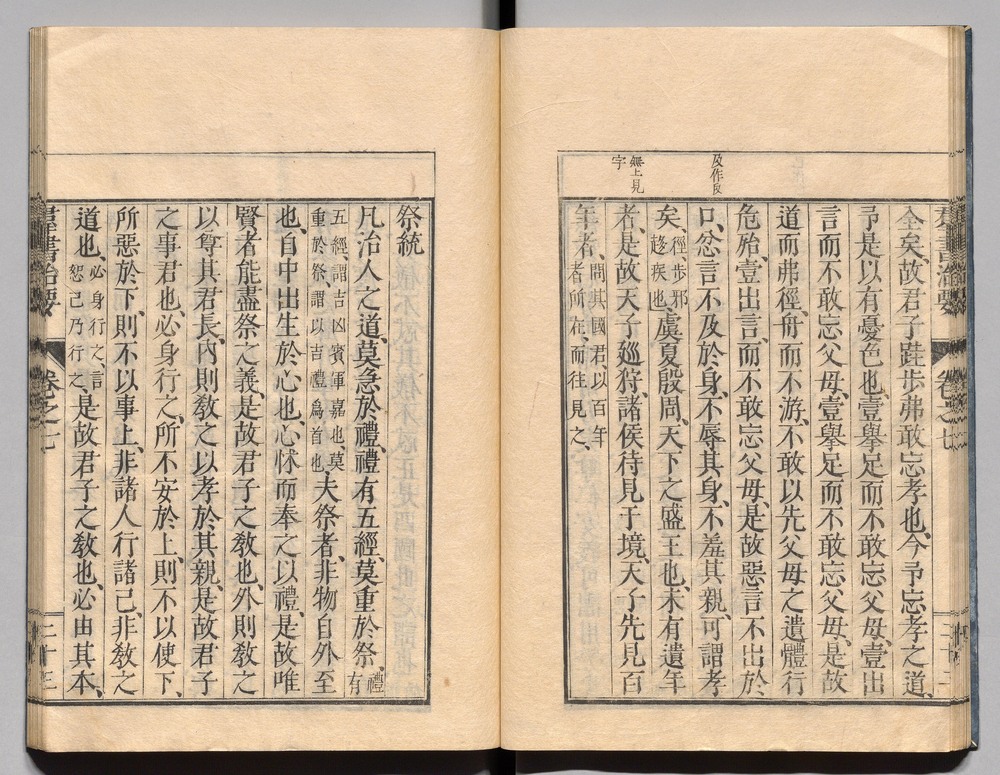 群書治要 卷之七
全矣、故君子跬歩弗敢忘孝也、今予忘孝之道、
予是以有憂色也、壹擧足而不敢忘父母、壹出
言而不敢忘父母、壹擧足而不敢忘父母、是故
道而弗徑、舟而不游、不敢以先父母之遺體行
危殆、壹出言、而不敢忘父母、是故惡言不出於
及作反
口、忿言不及於身、不辱其身、不羞其親、可謂孝
矣、徑歩邪趍疾也、虞夏殷周、天下之盛王也、未有遺年
無上見字
者、是故天子廵狩、諸侯待見于境、天子先見百
年者、問其國君、以百年者所在、而往見之、
祭統
凡治人之道、莫急於禮、禮有五經、莫重於祭、禮有
五經、謂吉凶賓軍嘉也、莫重於祭、謂以吉禮爲首也、夫祭者、非物自外至
也、自中出生於心也、心怵而奉之以禮、是故唯
賢者能盡祭之義、是故君子之敎也、外則敎之
以尊其君長、內則敎之以孝於其親、是故君子
之事君也、必身行之、所不安於上、則不以使下、
所惡於下、則不以事上、非諸人行諸己、非敎之
道也、必身行之、言恕己乃行之、是故君子之敎也、必由其本、
群書治要 卷之七 二十三